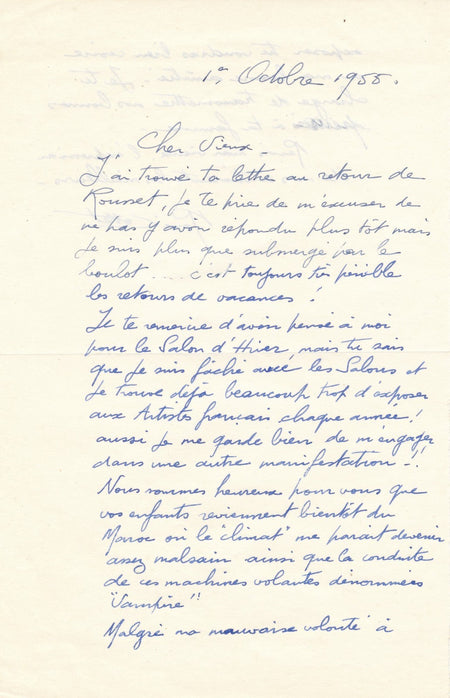 1er Octobre 1955.
Cher Vieux -
J'ai trouvé ta lettre au retour de
Rousset, je te prie de m'excuser de
ne pas y avoir répondu plus tôt mais
je suis plus que submergé par le
boulot .... c'est toujours très pénible
les retours de vacances !
Je te remercie d'avoir pensé à moi
pour le Salon d'Hiver, mais tu sais
que je suis fâché avec les Salons et
je trouve déjà beaucoup trop d'exposer
aux Artistes français chaque année !
aussi je me garde bien de m'engager
dans une autre manifestation - !!
Nous sommes heureux pour vous que
vos enfants reviennent bientôt du
Maroc où le "climat" me parait devenir
assez malsain ainsi que la conduite
de ces machines volantes dénommées
"Vampire" !
Malgré ma mauvaise volonté à